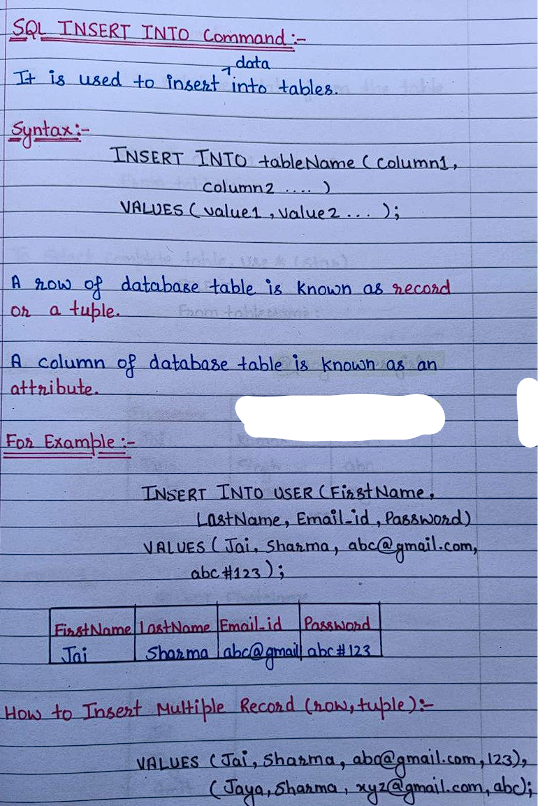 SQL INSERT INTO Command :-
data
It is used to insert into tables.
Syntax :-
INSERT INTO tableName (Column1,
column2 .... )
VALUES ( value1 , value2 ... );
A row of database table is known as record
or a tuple.
A column of database table is known as an
attribute.
For Example :-
INSERT INTO USER (FirstName,
LastName, Email_id , Password)
VALUES ( Jai, Sharma, abc@gmail.com,
abc#123 );
FirstName LastName Email_id Password
Jai Sharma abc@gmail abc#123
How to Insert Multiple Record (row, tuple) :-
VALUES (Jai, Sharma, abc@gmail.com, 123),
( Jaya, Sharma, xyz@gmail.com, abc);